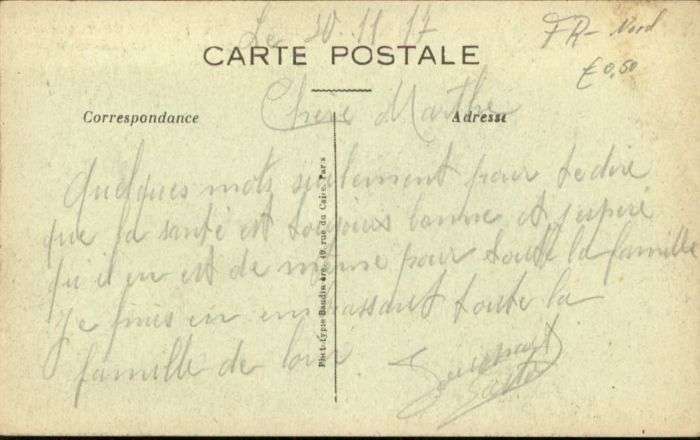 Le 30.11.17
FR- Nord
€0,50
CARTE POSTALE
Correspondance
Adresse
Chère Marthe
Quelques mots seulement pour te dire
que la santé est toujours bonne et j'espere
qu'il en est de même pour toute la famille
je finis en embrassant toute la
famille de loin
Phototypie Baudinière, 49 rue du Caire, Paris